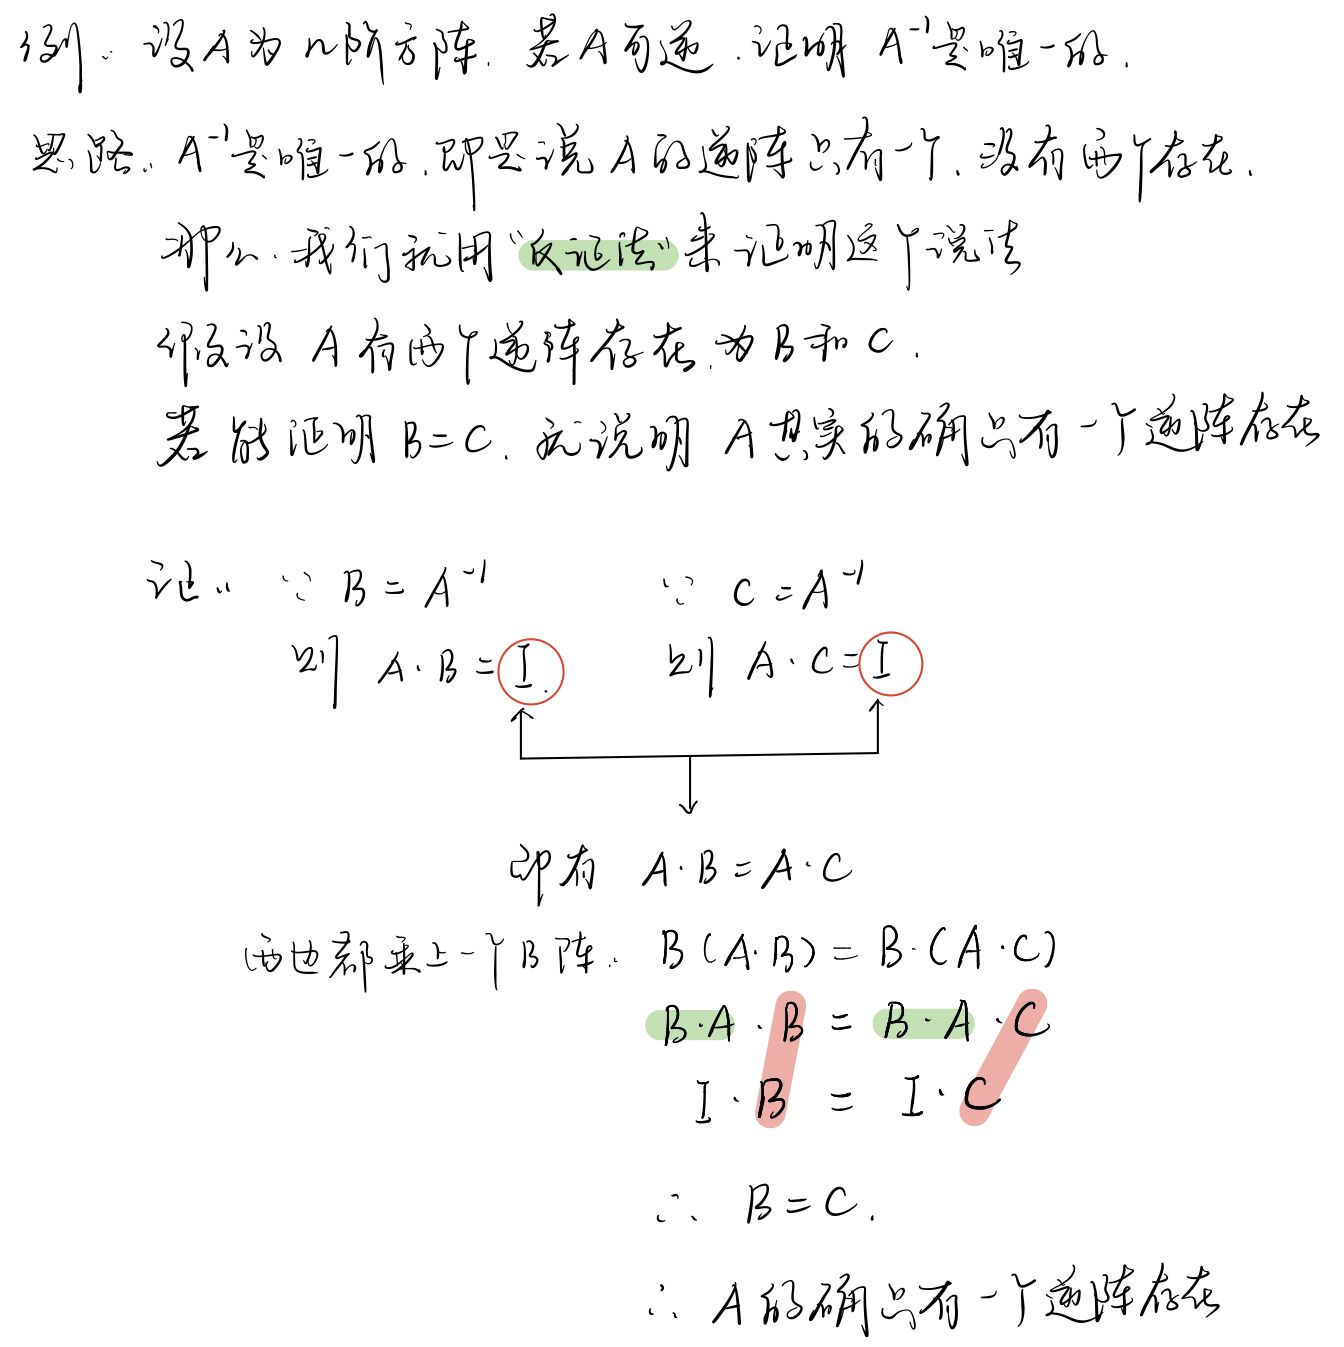 例: 设A为n阶方阵. 若A可逆. 证明 A⁻¹是唯一的.
思路: A⁻¹是唯一的, 即是说A的逆阵只有一个, 没有两个存在.
那么, 我们就用"反证法"来证明这个说法
假设 A有两个逆阵存在, 为B和C.
若能证明B=C, 就说明 A其实的确只有一个逆阵存在
证: ∵ B = A⁻¹ ∵ C = A⁻¹
则 A·B = I. 则 A·C = I
即有 A·B = A·C
两边都乘上一个B阵: B(A·B) = B·(A·C)
B·A·B = B·A·C
I·B = I·C
∴ B = C.
∴ A的确只有一个逆阵存在